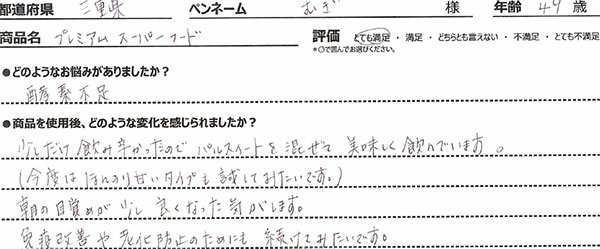 都道府県 三重県 ペンネーム むぎ 様 年齢 49 歳
商品名 プレミアムスーパーフード 評価 とても満足 ・ 満足 ・ どちらとも言えない ・ 不満足 ・ とても不満足
*○で囲んでお選びください。
●どのようなお悩みがありましたか?
酵素不足
●商品を使用後、どのような変化を感じられましたか?
少しだけ飲み辛かったので パルスイートを混ぜて 美味しく飲んでいます。
(今度は ほんのり甘いタイプも試してみたいです。)
朝の目覚めが少し良くなった気がします。
免疫改善や老化防止のためにも 続けてみたいです。